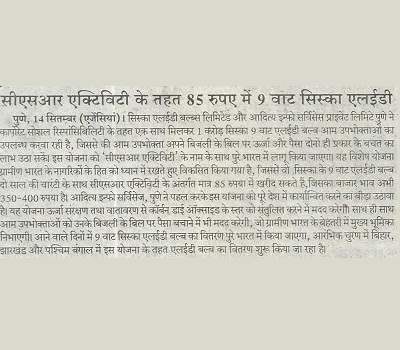 सीएसआर एक्टिविटी के तहत 85 रुपए में 9 वाट सिस्का एलईडी
पुणे, 14 सितम्बर (एजेंसियां)। सिस्का एलईडी बल्बस लिमिटेड और आदित्य इन्फो सर्विसेस प्राइवेट लिमिटे पुणे ने
कार्पोरेट सोशल रिस्पांसिबिलिटी के तहत एक साथ मिलकर 1 करोड़ सिस्का 9 वाट एलईडी बल्ब आम उपभोक्ताओं का
उपलब्ध करवा रही है, जिससे की आम उपभोक्ता अपने बिजली के बिल पर ऊर्जा और पैसा दोनो ही प्रकार के बचत का
लाभ उठा सके। इस योजना को 'सीएसआर एक्टिविटी' के नाम के साथ पुरे भारत में लागू किया जाएगा। यह विशेष योजना
ग्रामीण भारत के नागरीकों के हित को ध्यान में रखते हुए विकसित किया गया है, जिससे वो सिस्का के 9 वाट एलईडी बल्ब
दो साल की वारंटी के साथ सीएसआर एक्टिविटी के अंतर्गत मात्र 85 रुपया में खरीद सकते है, जिसका बाजार भाव अभी
350-400 रुपया है। आदित्य इन्फो सर्विसेज, पुणे ने पहल करके इस योजना को पूरे देश में कार्यान्वित करने का बीड़ा उठाया
है। यह योजना ऊर्जा संरक्षण तथा वातावरण से कॉर्बन डाई ऑक्साइड के स्तर को संतुलित करने में मदद करेगी। साथ ही साथ
आम उपभोक्ताओं को उनके बिजली के बिल पर पैसा बचाने में भी मदद करेगी, जो ग्रामीण भारत के बेहतरी में मुख्य भूमिका
निभाएगी। आने वाले दिनों में 9 वाट एलईडी बल्ब का वितरण पुरे भारत में किया जाएगा, आरंभिक चुरण में बिहार,
झारखंड और पश्चिम बंगाल में इस योजना के तहत एलईडी बल्ब का वितरण शुरू किया जा रहा है।